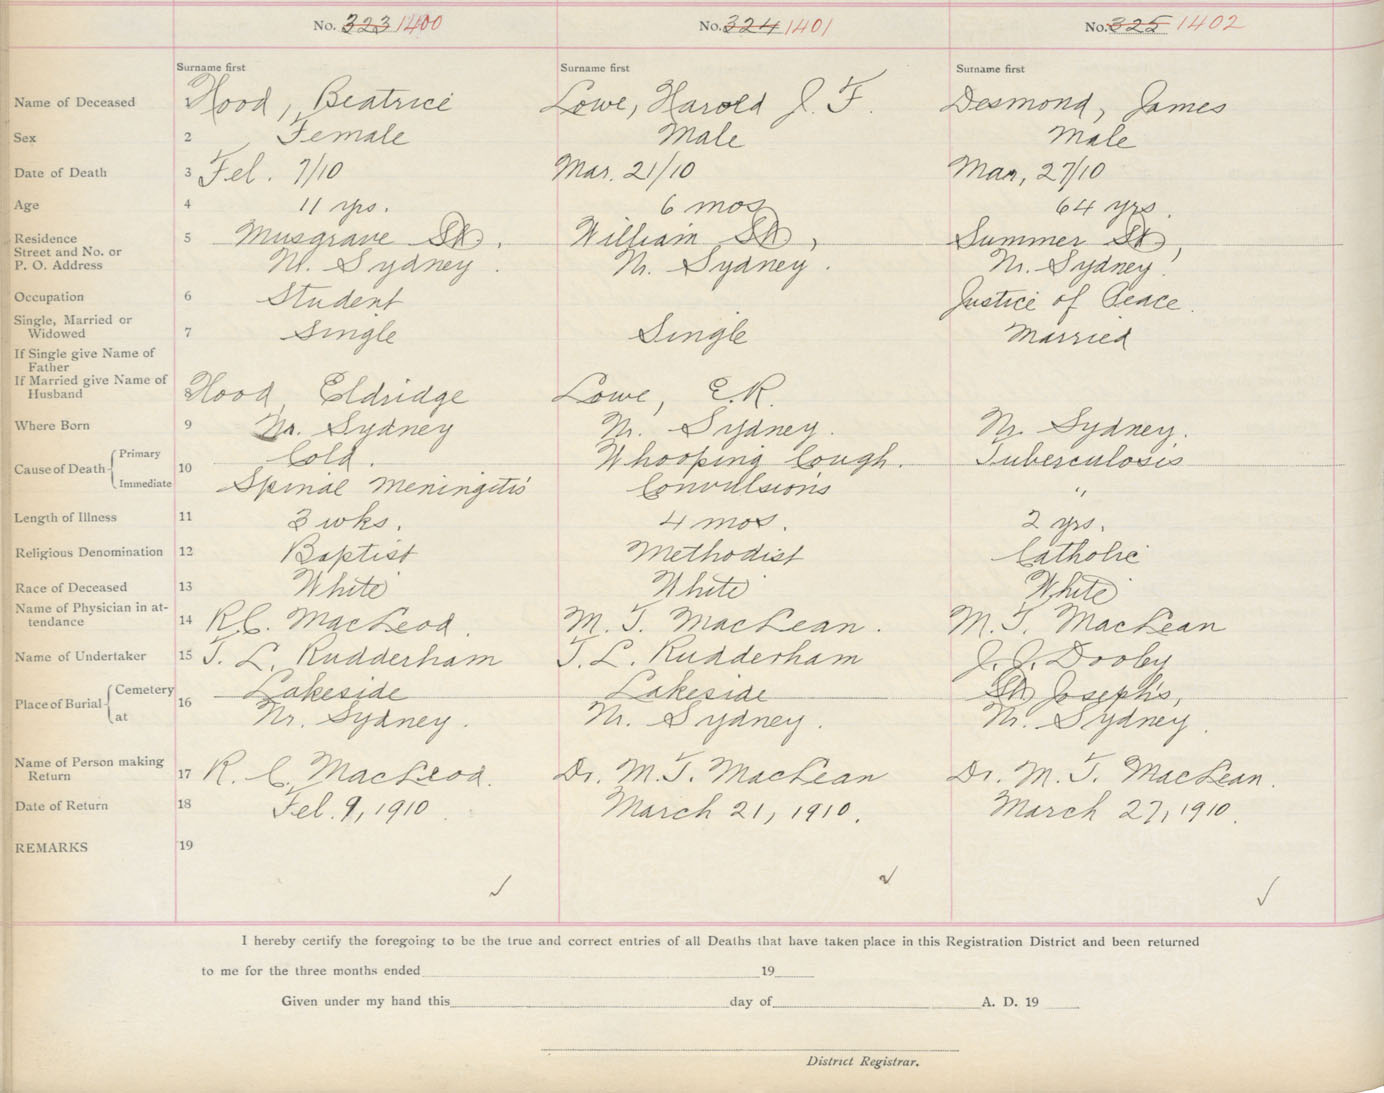 No. 323 1400 No. 324 1401 No. 325 1402
Surname first Surname first Surname first
Name of Deceased 1 Hood, Beatrice Lowe, Harold J. F. Desmond, James
Sex 2 Female Male Male
Date of Death 3 Feb. 7/10 Mar. 21/10 Mar, 27/10
Age 4 11 yrs. 6 mos 64 yrs.
Residence 5 Musgrave St, William St, Summer St,
Street and No. or
P. O. Address N. Sydney. N. Sydney. N. Sydney.
Occupation 6 Student Justice of Peace.
Single, Married or
Widowed 7 Single Single Married
If Single give Name of
Father
If Married give Name of
Husband 8 Hood, Eldridge Lowe, E.R.
Where Born 9 N. Sydney N. Sydney. N. Sydney.
Cause of Death Primary 10 Cold. Whooping Cough. Tuberculosis
Immediate Spinal Meningitis Convulsions "
Length of Illness 11 3 wks. 4 mos. 2 yrs.
Religious Denomination 12 Baptist Methodist Catholic
Race of Deceased 13 White White White
Name of Physician in at-
tendance 14 R.C. MacLeod. M. T. MacLean. M. T. MacLean
Name of Undertaker 15 T. L. Rudderham T. L. Rudderham J. J. Dooley
Place of Burial Cemetery 16 Lakeside Lakeside St Joseph's,
at N. Sydney. N. Sydney. N. Sydney.
Name of Person making
Return 17 R. C. MacLeod. Dr. M. T. MacLean Dr. M. T. MacLean.
Date of Return 18 Feb. 9, 1910 March 21, 1910. March 27, 1910.
REMARKS 19
I hereby certify the foregoing to be the true and correct entries of all Deaths that have taken place in this Registration District and been returned
to me for the three months ended 19
Given under my hand this day of A. D. 19
District Registrar.